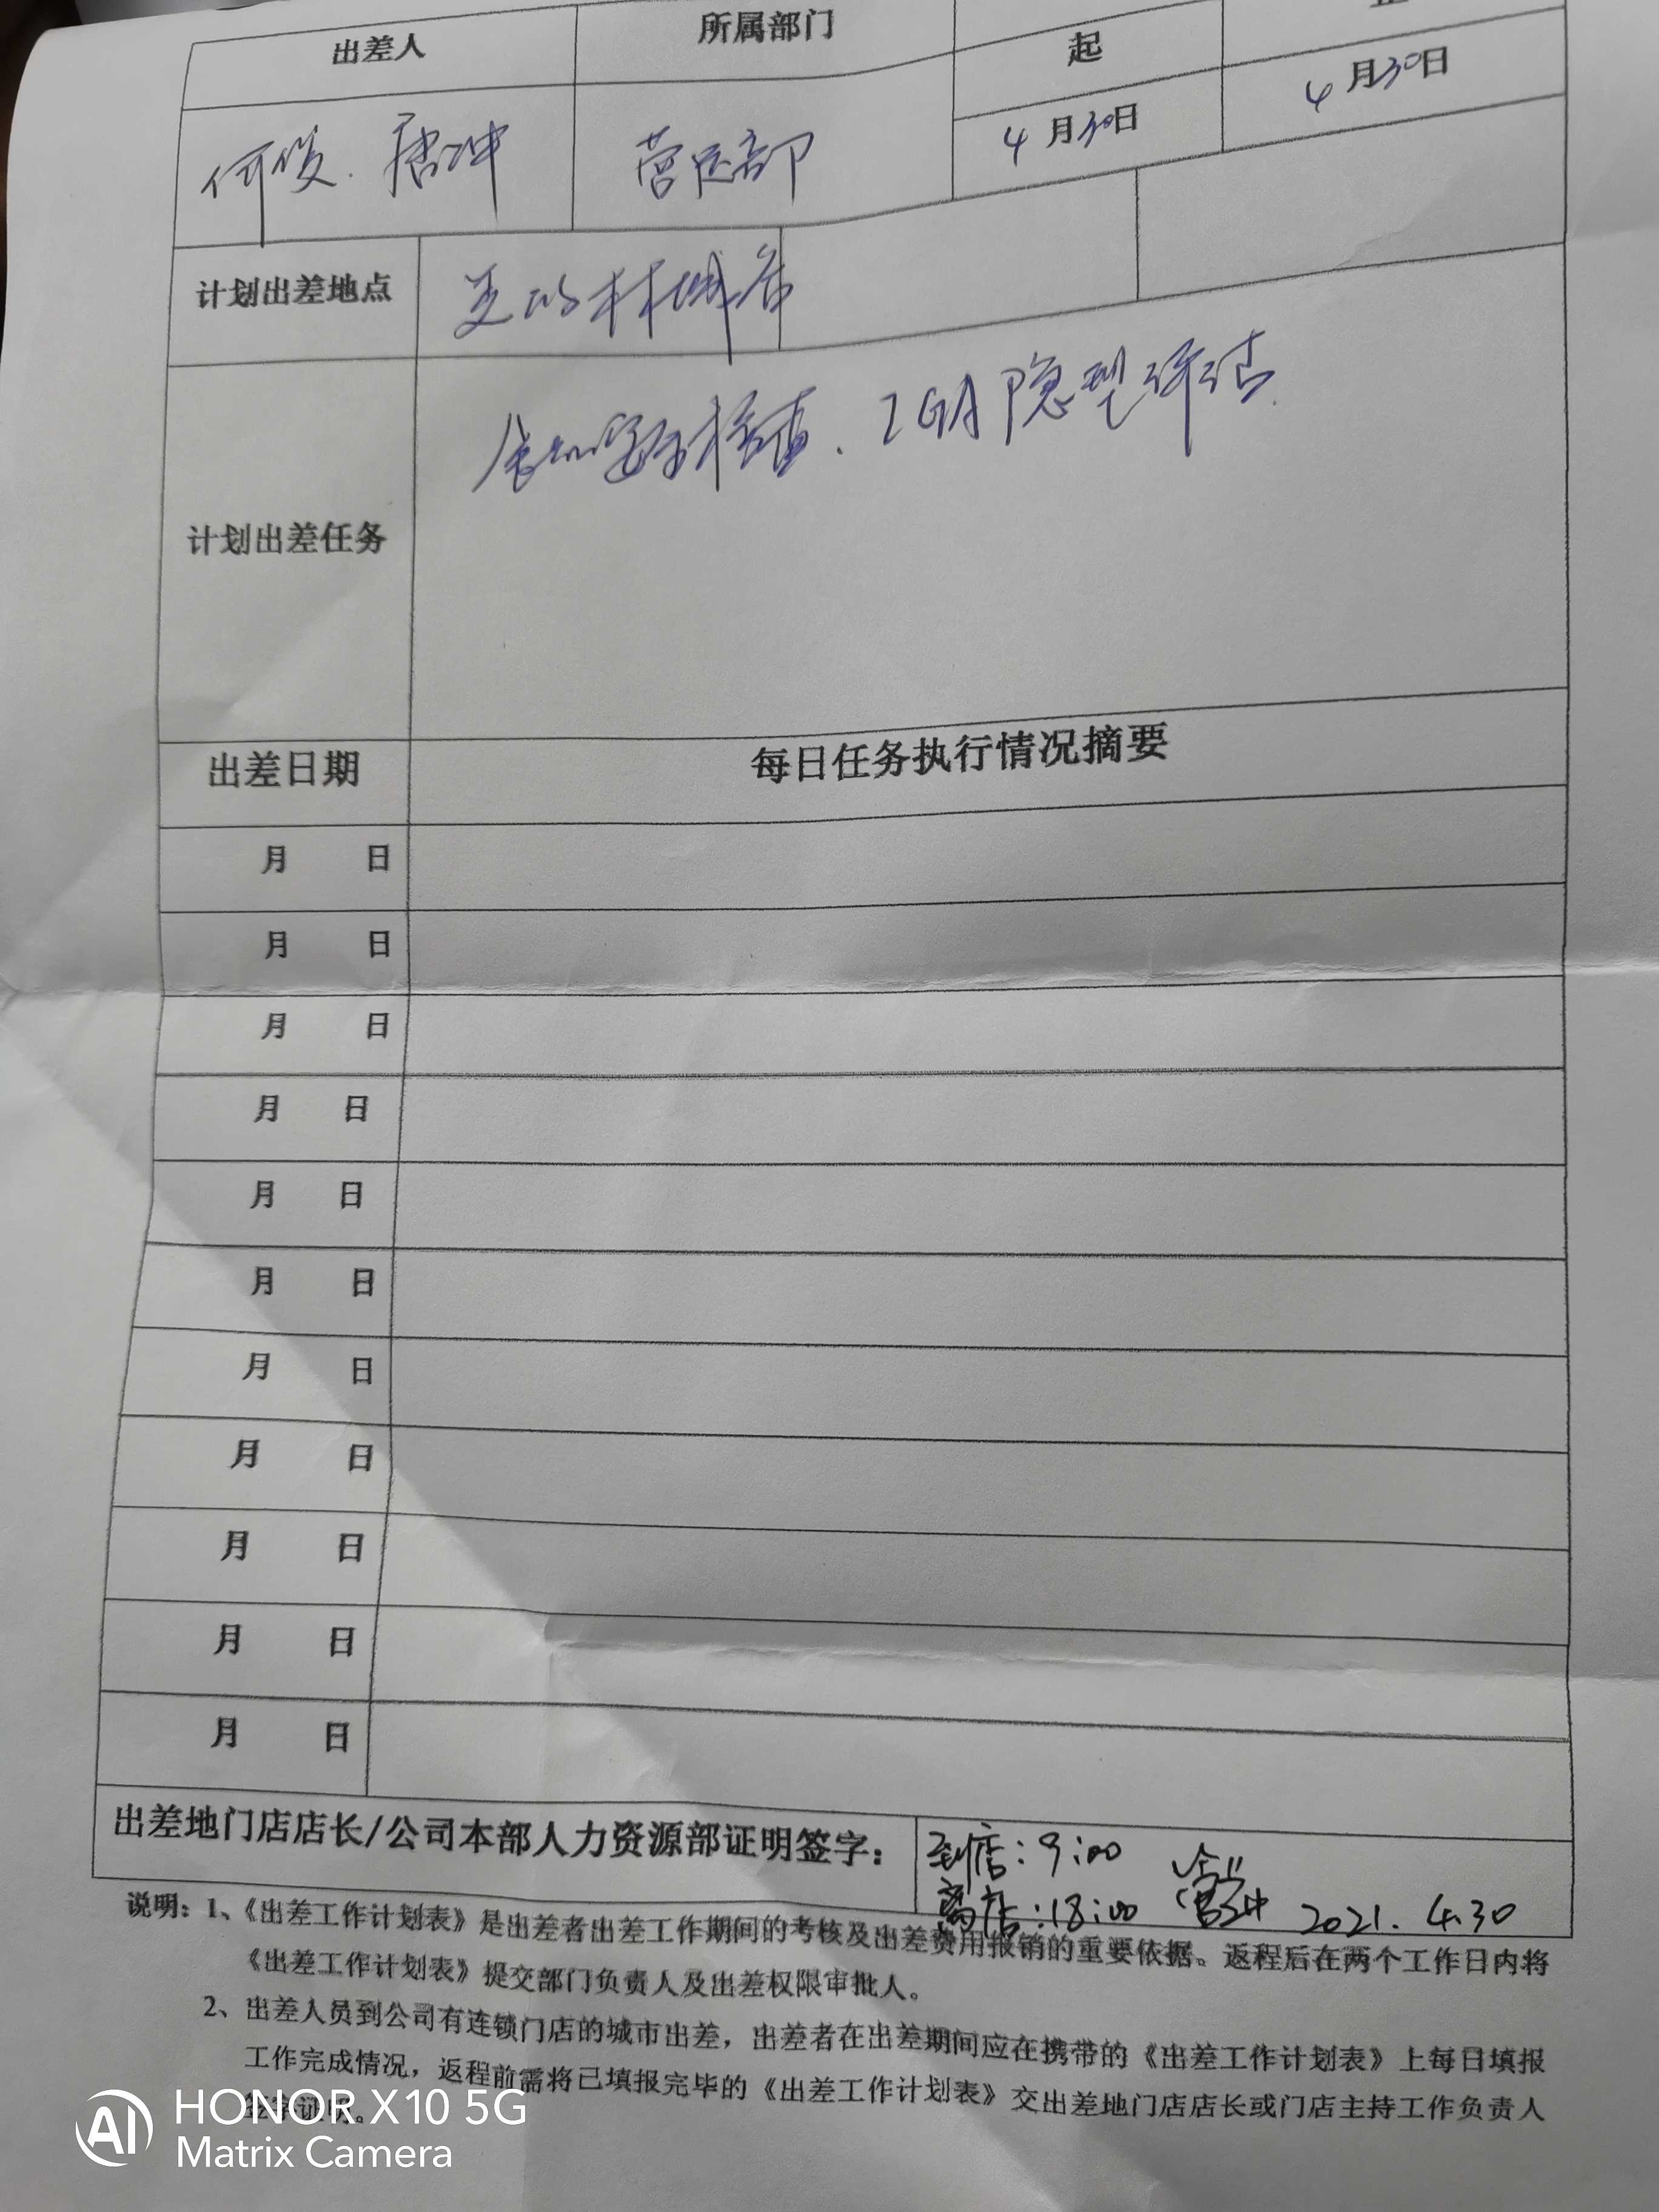 出差人 所属部门 起
4月30日
何俊. 唐冲 营运部 4月30日
计划出差地点 美的林城店
计划出差任务 核查. IGA隐型评估.
出差日期 每日任务执行情况摘要
月 日
月 日
月 日
月 日
月 日
月 日
月 日
月 日
月 日
月 日
月 日
出差地门店店长/公司本部人力资源部证明签字： 到店：9:00
离店：18:00 2021. 4.30
说明：1、《出差工作计划表》是出差者出差工作期间的考核及出差费用报销的重要依据。返程后在两个工作日内将
《出差工作计划表》提交部门负责人及出差权限审批人。
2、出差人员到公司有连锁门店的城市出差，出差者在出差期间应在携带的《出差工作计划表》上每日填报
工作完成情况，返程前需将已填报完毕的《出差工作计划表》交出差地门店店长或门店主持工作负责人
签字证明。
AI HONOR X10 5G
Matrix Camera